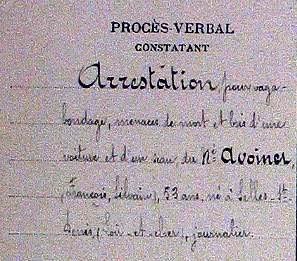 PROCÈS-VERBAL
CONSTATANT
Arrestation pour vaga-
bondage, menaces de mort et bris d'une
voiture et d'un seau du Né Avoinet,
(François, Silvain), 53 ans, né à Selles-St-
Denis, Loir-et-cher, journalier.